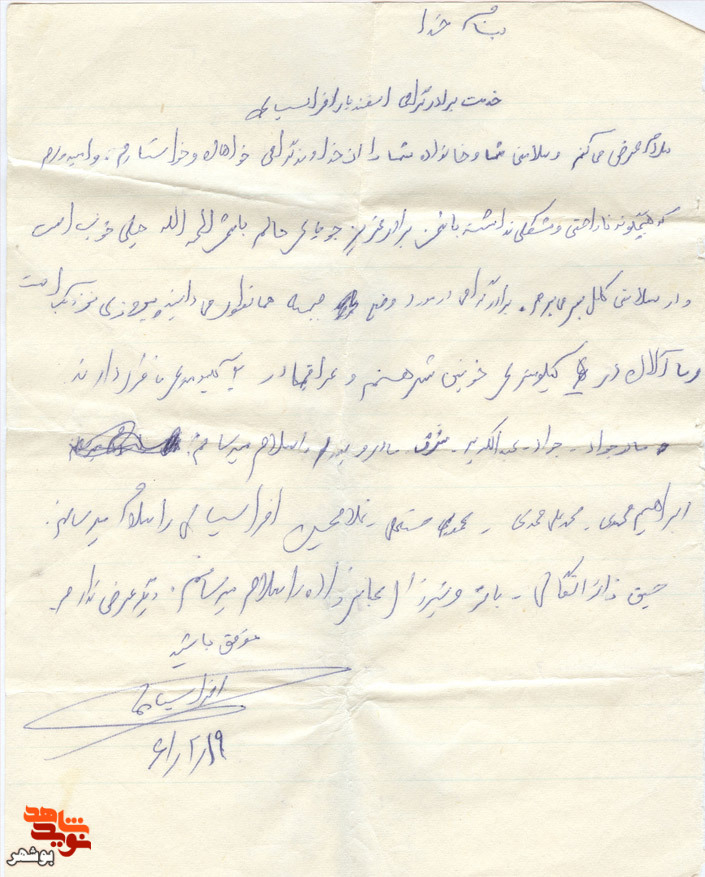 بنام خدا
خدمت برادر گرامی اسفندیار افراسیابی
سلام عرض می کنم و سلامتی شما و خانواده شما را از خداوند گرامی خواهان و خواستارم. و امیدورم
که هیچگونه ناراحتی و مشکلی نداشته باشی. برادر عزیز جویای حالم باشی الحمد الله خیلی خوب است
و در سلامتی کامل بسر می برم. برادر گرامی در مورد وضع جبهه همانطور می دانید پیروزی نزدیک است
و ما آلان در کیلومتری خونین شهر هستیم و عراقیها در کیلومتری ما قرار دارند
مادر جواد - جواد - عبدالکریم - مادر و پدر را سلام میرسانم.
ابراهیم محمدی - محمد علی محمدی - محمد - غلامحسین افراسیابی را سلام میرسانم.
حسین - باقر و عباس زاده را سلام میرسانم. دیگر عرضی ندارم
موفق باشید
افراسیابی
۶۱/۲/۱۹
نوید شاهد
بوشهر